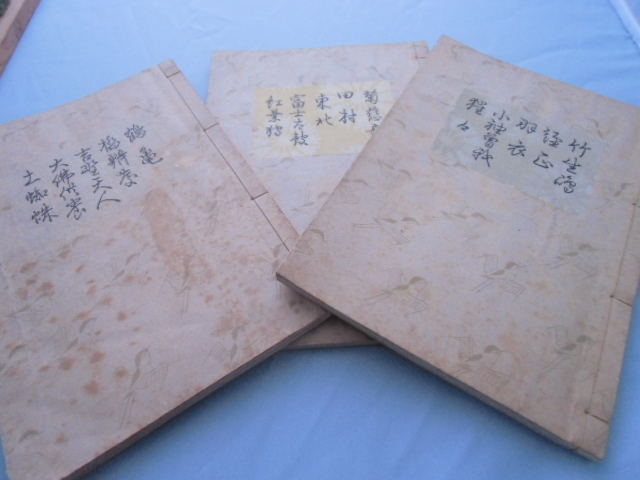 鶴亀
橋辨慶
吉野天人
大佛供養
土蜘蛛
菊慈童
田村
東北
富士太鼓
紅葉狩
竹生嶋
経正
羽衣
小袖曽我
猩々